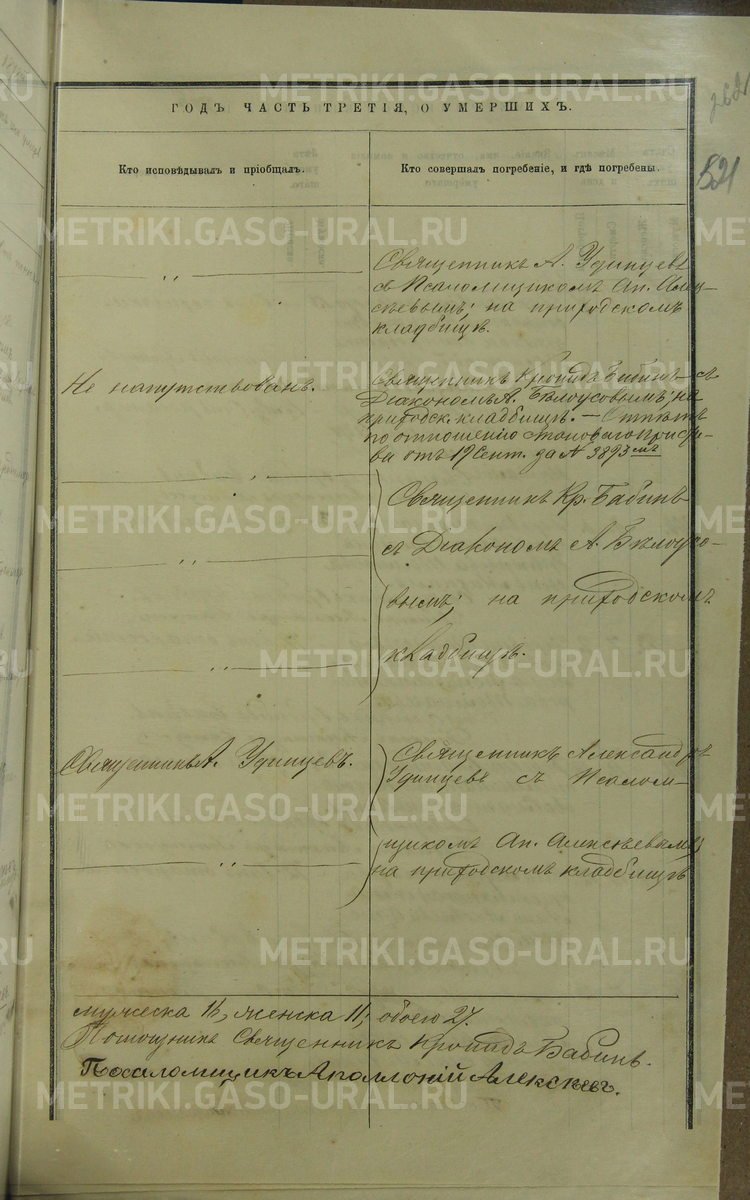 262
521
ГОДЪ ЧАСТЬ ТРЕТІЯ, О УМЕРШИХЪ.
Кто исповѣдывалъ и пріобщалъ.
Кто совершалъ погребеніе, и гдѣ погребены.
— „ —
Священникъ А. Удинцевъ
съ Псаломщикомъ Ап. Алек-
сѣевымъ; на приходскомъ
кладбищѣ.
Не напутствованъ.
Священникъ Кронидъ Бабинъ съ
Діакономъ А. Бѣлоусовымъ; на
приходск. кладбищѣ. — Отпѣтъ
по отношенію Становаго Приста-
ва отъ 19 Сент. за № 3893мъ
— „ —
— „ —
— „ —
Священникъ Кр. Бабинъ
съ Діакономъ А. Бѣлоусо-
вымъ; на приходскомъ
кладбищѣ.
Священникъ А. Удинцевъ.
— „ —
Священникъ Александръ
Удинцевъ съ Псалом-
щикомъ Ап. Алексѣевымъ;
на приходскомъ кладбищѣ
мужеска 16, женска 11, обоего 27.
Помощникъ Священникъ Кронидъ Бабинъ.
Псаломщикъ Аполлоній Алексѣевъ.
METRIKI.GASO-URAL.RU